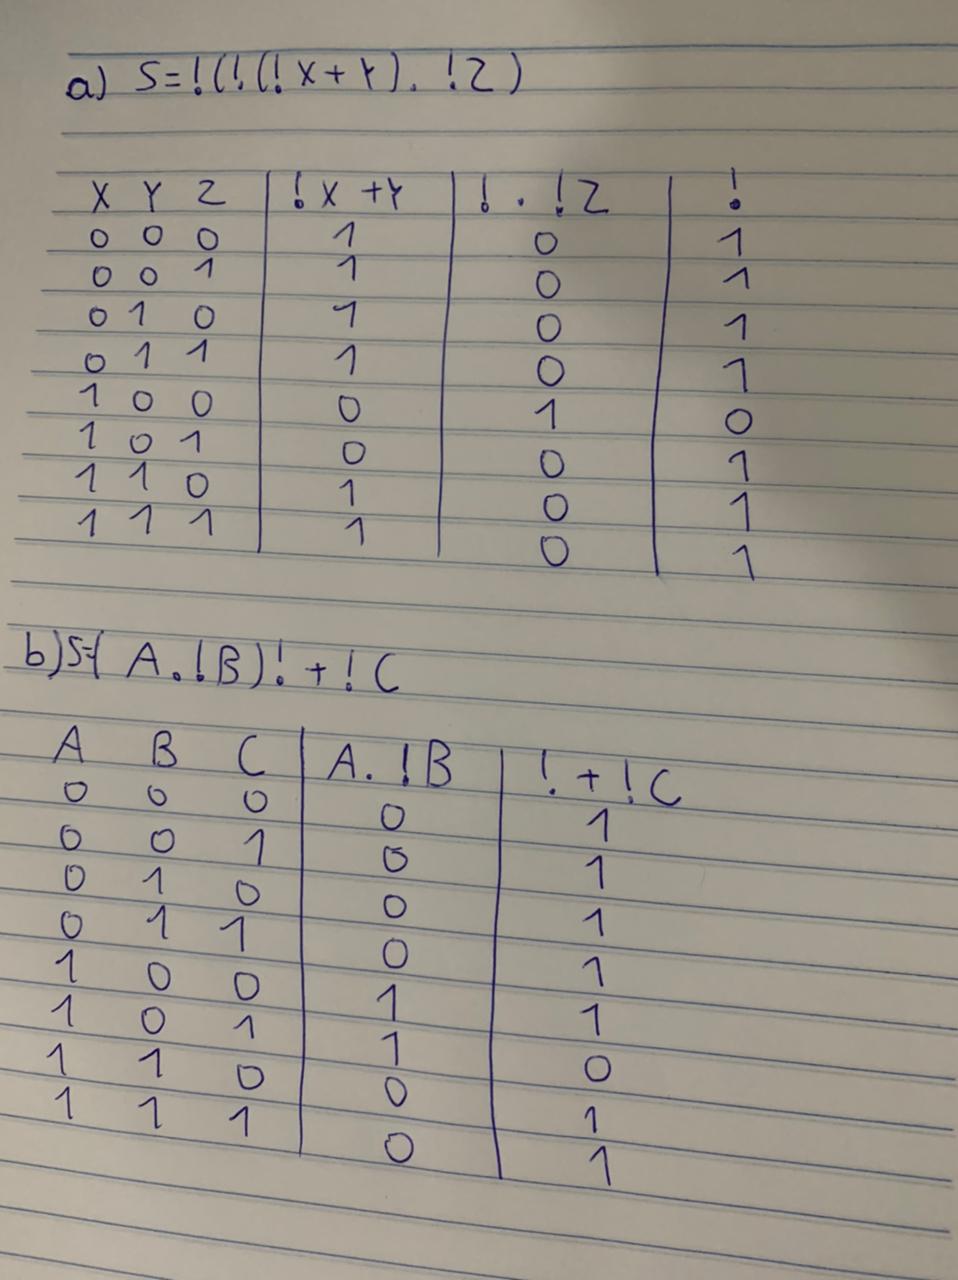 a) S=!(!(!X+Y). !Z)
X Y Z !X+Y !.!Z !
0 0 0 1 0 1
0 0 1 1 0 1
0 1 0 1 0 1
0 1 1 1 0 1
1 0 0 0 1 0
1 0 1 0 0 1
1 1 0 1 0 1
1 1 1 1 0 1
b) S=( A.!B)! + !C
A B C A.!B !+!C
0 0 0 0 1
0 0 1 0 1
0 1 0 0 1
0 1 1 0 1
1 0 0 1 1
1 0 1 1 0
1 1 0 0 1
1 1 1 0 1